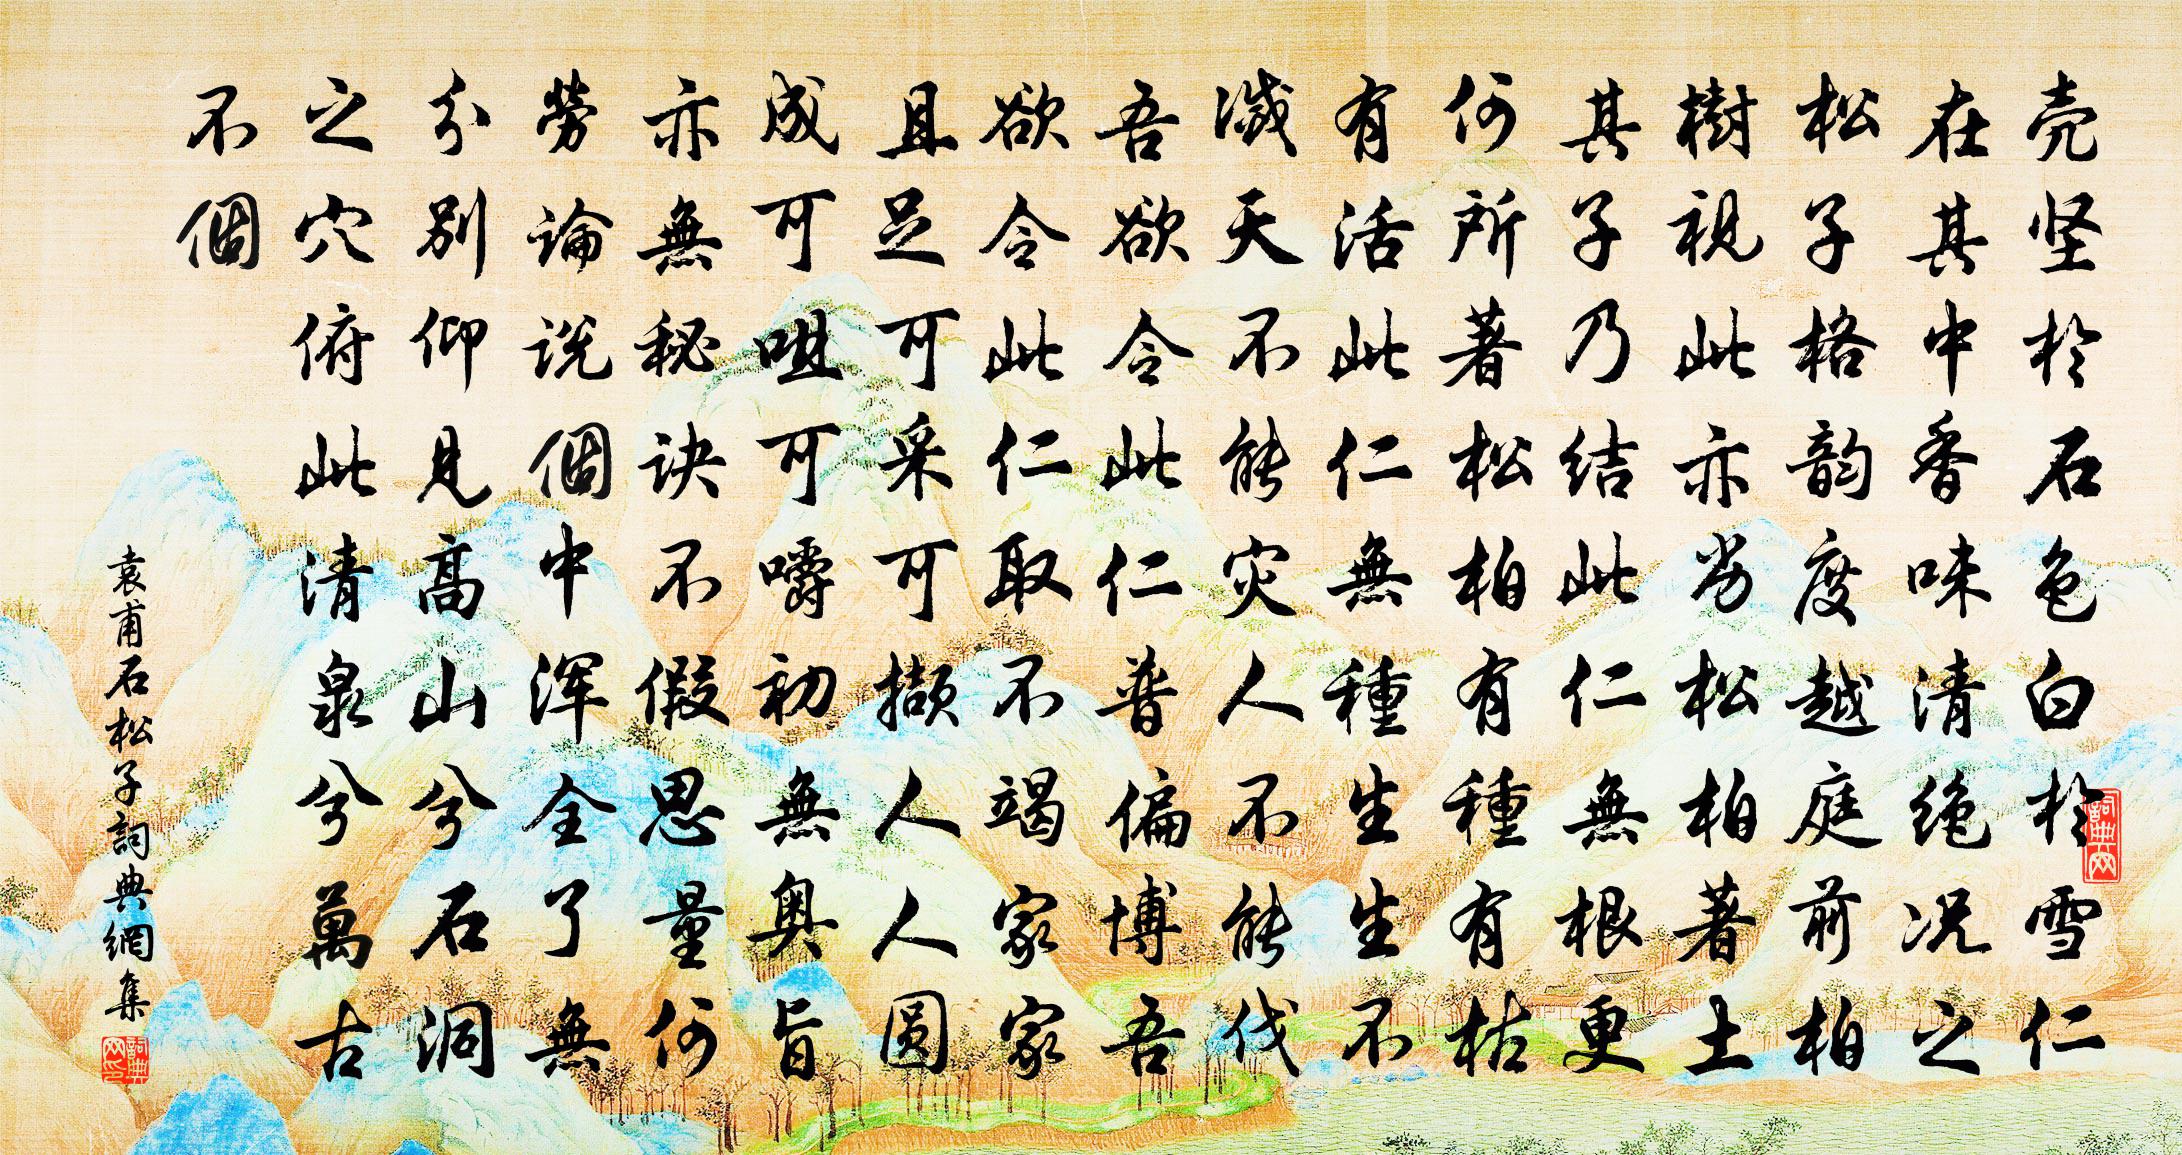 壳坚於石色白於雪仁
在其中香味清绝况之
松子格韵度越庭前柏
樹視此亦劣松柏著土
其子乃结此仁無根更
何所著松柏有種有枯
有活此仁無種生生不
滅天不能灾人不能伐
吾欲令此仁普偏博吾
欲令此仁取不竭家家
且足可采可撷人人圆
成可咀可嚼初無奥旨
亦無秘诀不假思量何
劳論説個中浑全了無
分别仰見高山兮石洞
之穴俯此清泉兮萬古
不個
袁甫石松子詞典網集
詞典网
詞典网印